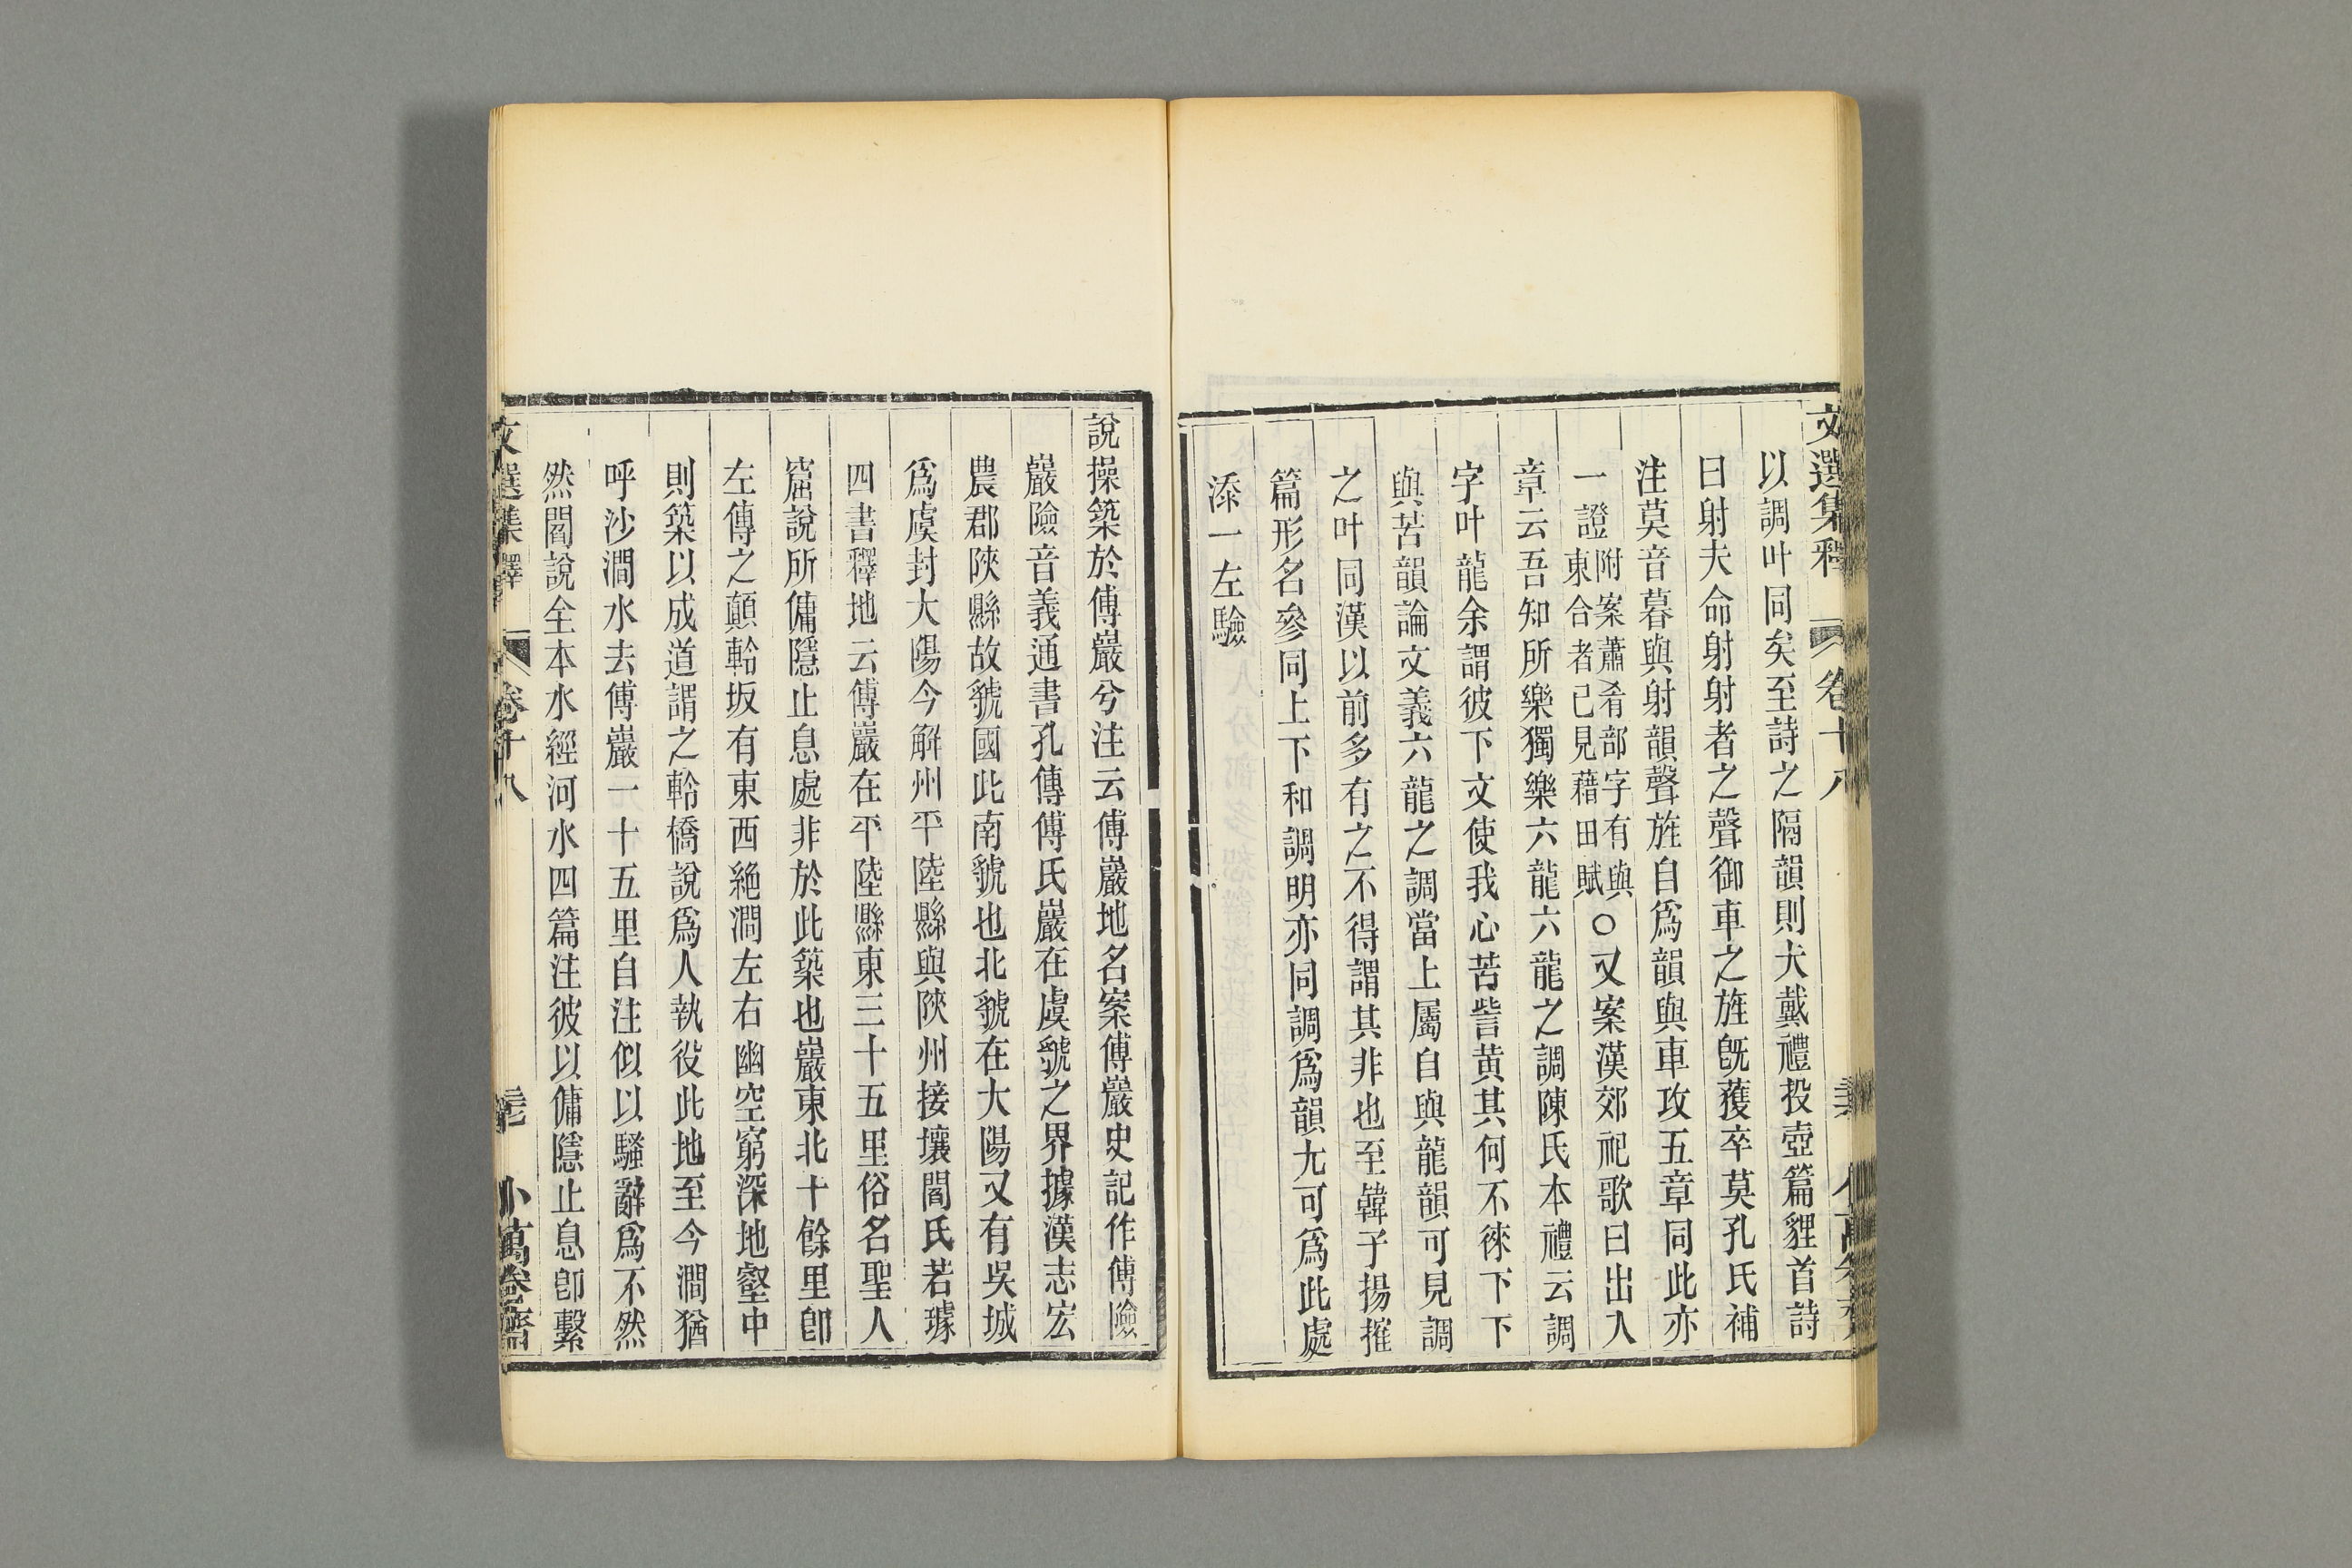 文選集釋 卷十八
以調叶同矣至詩之隔韻則大戴禮投壺篇貍首詩
曰射夫命射射者之聲御車之旌旣獲卒莫孔氏補
注莫音暮與射韻聲旌自爲韻與車攻五章同此亦
一證附案蕭肴部字有與東合者已見藉田賦○又案漢郊祀歌日出入
章云吾知所樂獨樂六龍六龍之調陳氏本禮云調
字叶龍余謂彼下文使我心苦訾黄其何不徠下下
與苦韻論文義六龍之調當上屬自與龍韻可見調
之叶同漢以前多有之不得謂其非也至韓子揚搉
篇形名參同上下和調明亦同調爲韻尤可爲此處
添一左驗
說操築於傅巖兮注云傅巖地名案傅巖史記作傅險
巖險音義通書孔傳傅氏巖在虞虢之界據漢志宏
農郡陝縣故虢國此南虢也北虢在大陽又有吳城
爲虞封大陽今解州平陸縣與陝州接壤閻氏若璩
四書釋地云傅巖在平陸縣東三十五里俗名聖人
窟說所傭隱止息處非於此築也巖東北十餘里卽
左傳之顛軨坂有東西絶澗左右幽空窮深地壑中
則築以成道謂之軨橋說爲人執役此地至今澗猶
呼沙澗水去傅巖一十五里自注似以騷辭爲不然
然閻說全本水經河水四篇注彼以傭隱止息卽繫
文選集釋 卷十八 小萬卷齋